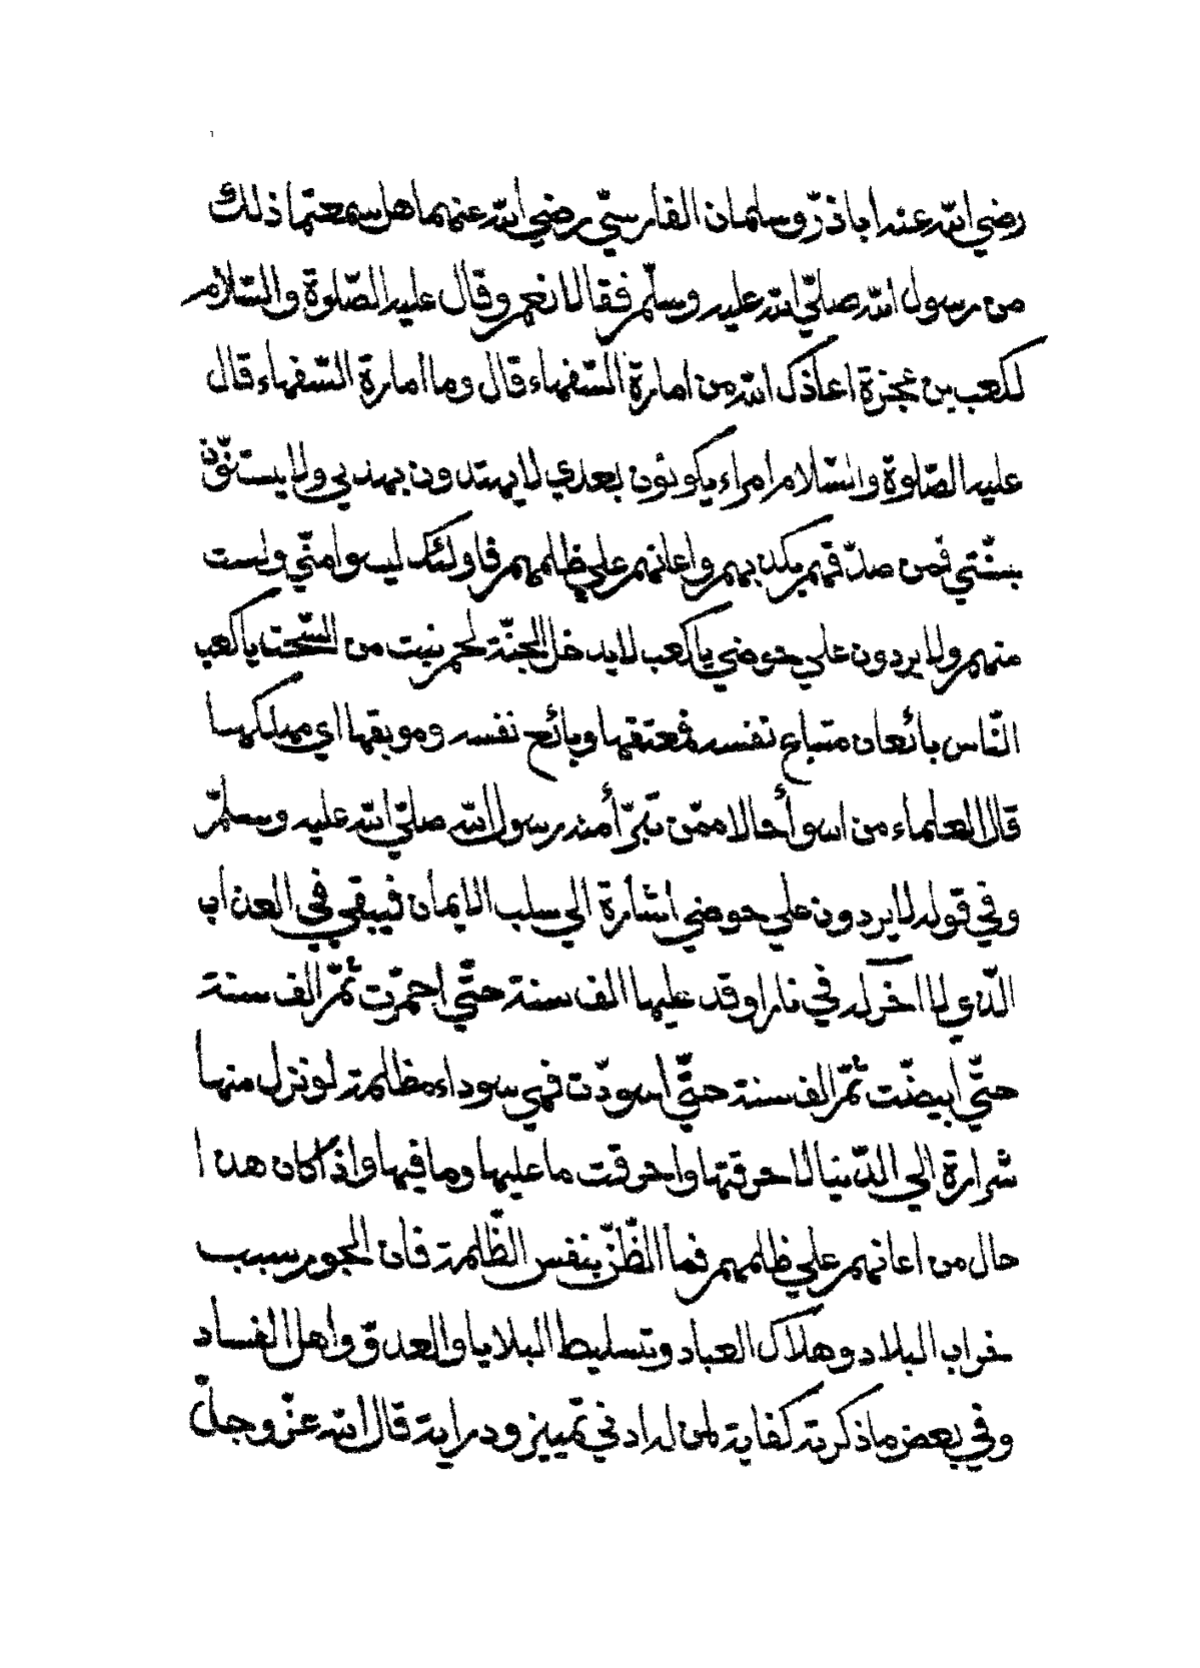 رضي الله عنه اباذرّ وسلمان الفارسيّ رضي الله عنهما هل سمعتما ذلك
من رسول الله صلّي الله عليه وسلّم فقالا نعم وقال عليه الصّلوة والسّلام
لكعب بن عجزة اعاذك الله من امارة السّفهاء قال وما امارة السّفهاء قال
عليه الصّلوة والسّلام امراء يكونون بعدي لا يهتدون بهديي ولا يستنّون
بسنّتي فمن صدّقهم بكذبهم واعانهم علي ظلمهم فاولئك ليسوا منّي ولست
منهم ولا يردون علي حوضي يا كعب لا يدخل الجنّة لحم نبت من السّحت يا كعب
النّاس بائعان مبتاع نفسه فمعتقها وبائع نفسه وموبقها اي مهلكها
قال العلماء من اسوأ حالا ممّن تبرّأ منه رسول الله صلّي الله عليه وسلّم
وفي قوله لا يردون علي حوضي اشارة الي سلب الايمان فيبقي في العذاب
الذّي لا اخر له في نار اوقد عليها الف سنة حتّي احمرّت ثمّ الف سنة
حتّي ابيضّت ثمّ الف سنة حتّي اسودّت فهي سوداء مظلمة لو نزل منها
شرارة الي الدّنيا لاحرقتها واحرقت ما عليها وما فيها واذا كان هذا
حال من اعانهم علي ظلمهم فما الظّنّ بنفس الظّلمة فان الجور سبب
خراب البلاد وهلاك العباد وتسليط البلايا والعدوّ واهل الفساد
وفي بعض ما ذكرته كفاية لمن له ادني تمييز ودراية قال الله عزّ وجلّ